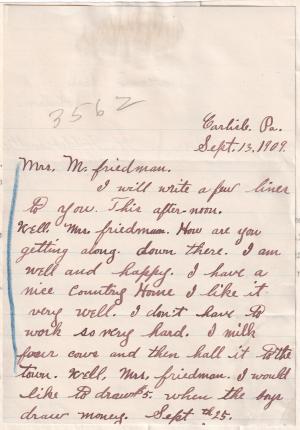 3562
Carlisle. Pa.
Sept. 13. 1909.
Mrs. M. friedman.
I will write a few lines
to you. This after-noon.
Well. Mrs. friedman. How are you
getting along down there. I am
well and happy. I have a
nice Country Home I like it
very well. I don't have to
work so very hard. I milk
four cows and then hall it to the
town. Well, Mrs. friedman. I would
like to draw $5. when the boys
draw money. Sept th 25.